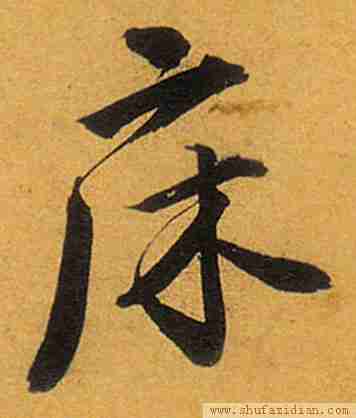 床
www.shufazidian.com